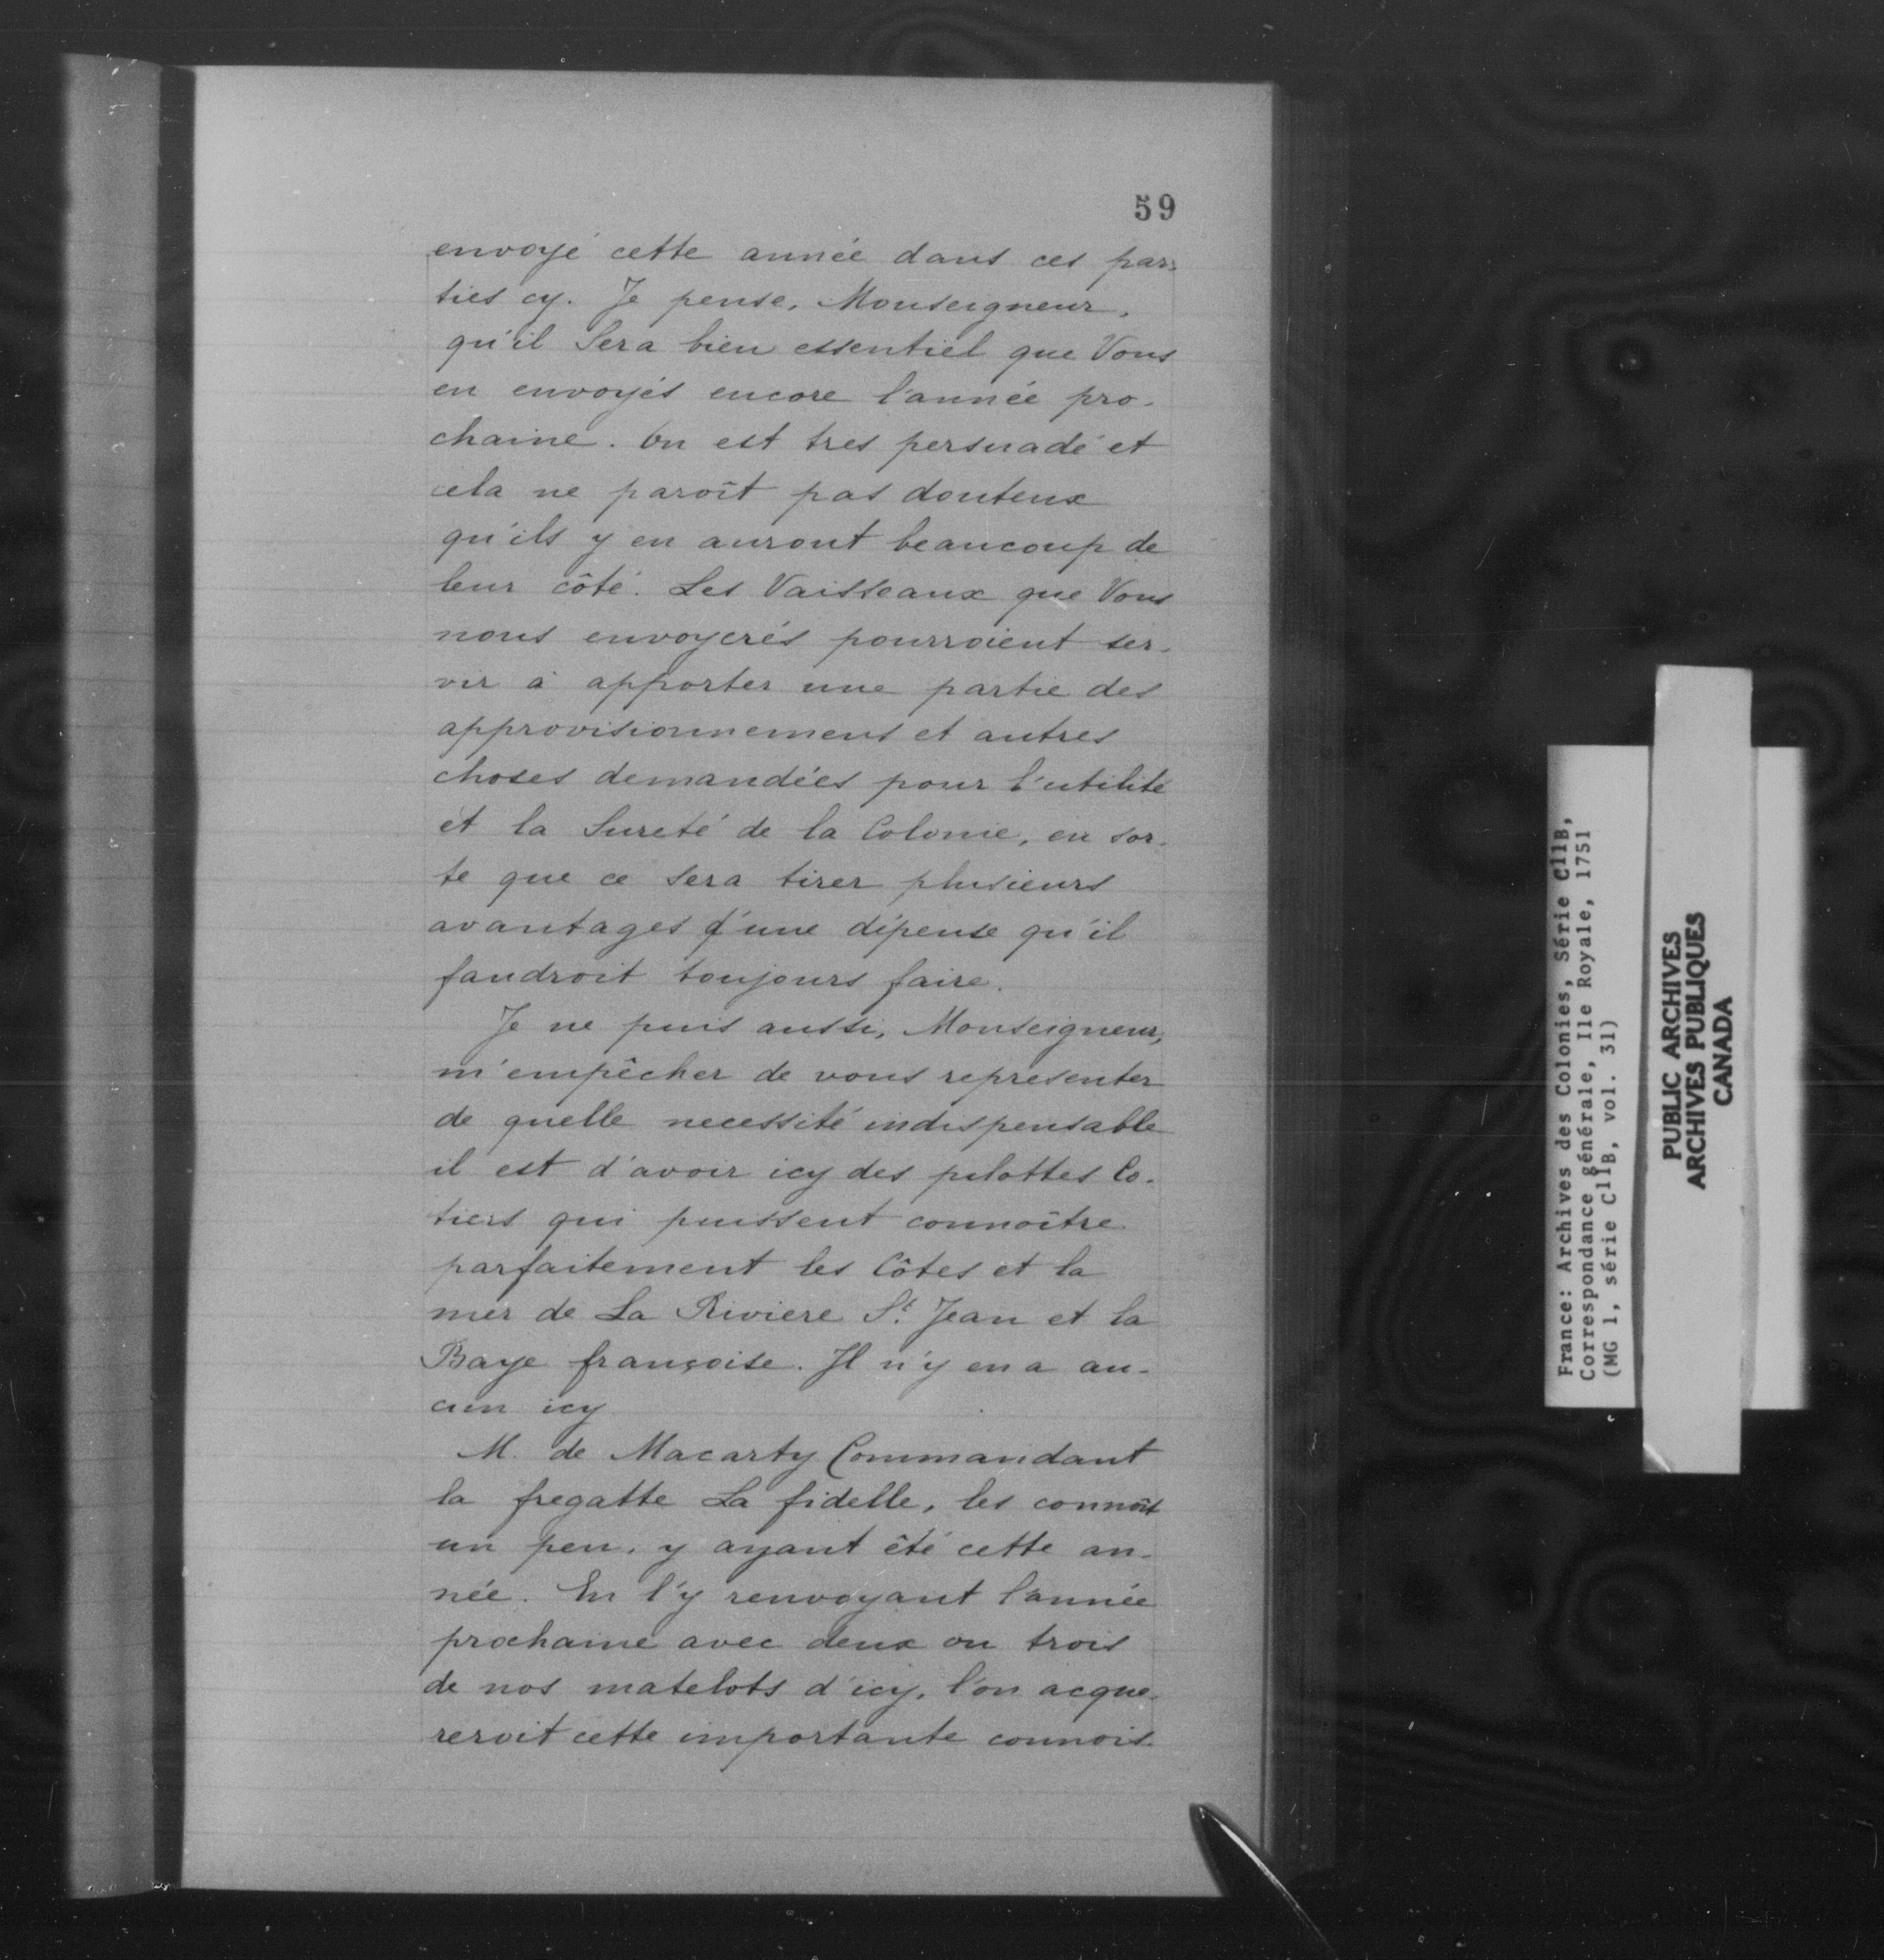 59
envoyé cette année dans ces par-
ties cy. Je pense, Monseigneur,
qu'il Sera bien essentiel que Vous
en envoyés encore l'année pro-
chaine. On est tres persuadé et
cela ne paroît pas douteux
qu'ils y en auront beaucoup de
leur côté. Les Vaisseaux que Vous
nous envoyerés pourroient ser-
vir à apporter une partie des
approvisionnemens et autres
choses demandées pour l'utilité
et la Sureté de la Colonie, en sor-
te que ce sera tirer plusieurs
avantages d'une dépense qu'il
faudroit toujours faire.
Je ne puis aussi, Monseigneur,
m'empêcher de vous representer
de quelle necessité indispensable
il est d'avoir icy des pilottes Co-
tiers qui puissent connoître
parfaitement les Côtes et la
mer de La Riviere St. Jean et la
Baye françoise. Il n'y en a au-
cun icy
M. de Macarty Commandant
la fregatte La fidelle, les connoît
un peu, y ayant êté cette an-
née. En l'y renvoyant l'année
prochaine avec deux ou trois
de nos matelots d'icy, l'on acque-
reroit cette importante connois-
France: Archives des Colonies, Série C11B,
Correspondance générale, Ile Royale, 1751
(MG 1, série C11B, vol. 31)
PUBLIC ARCHIVES
ARCHIVES PUBLIQUES
CANADA